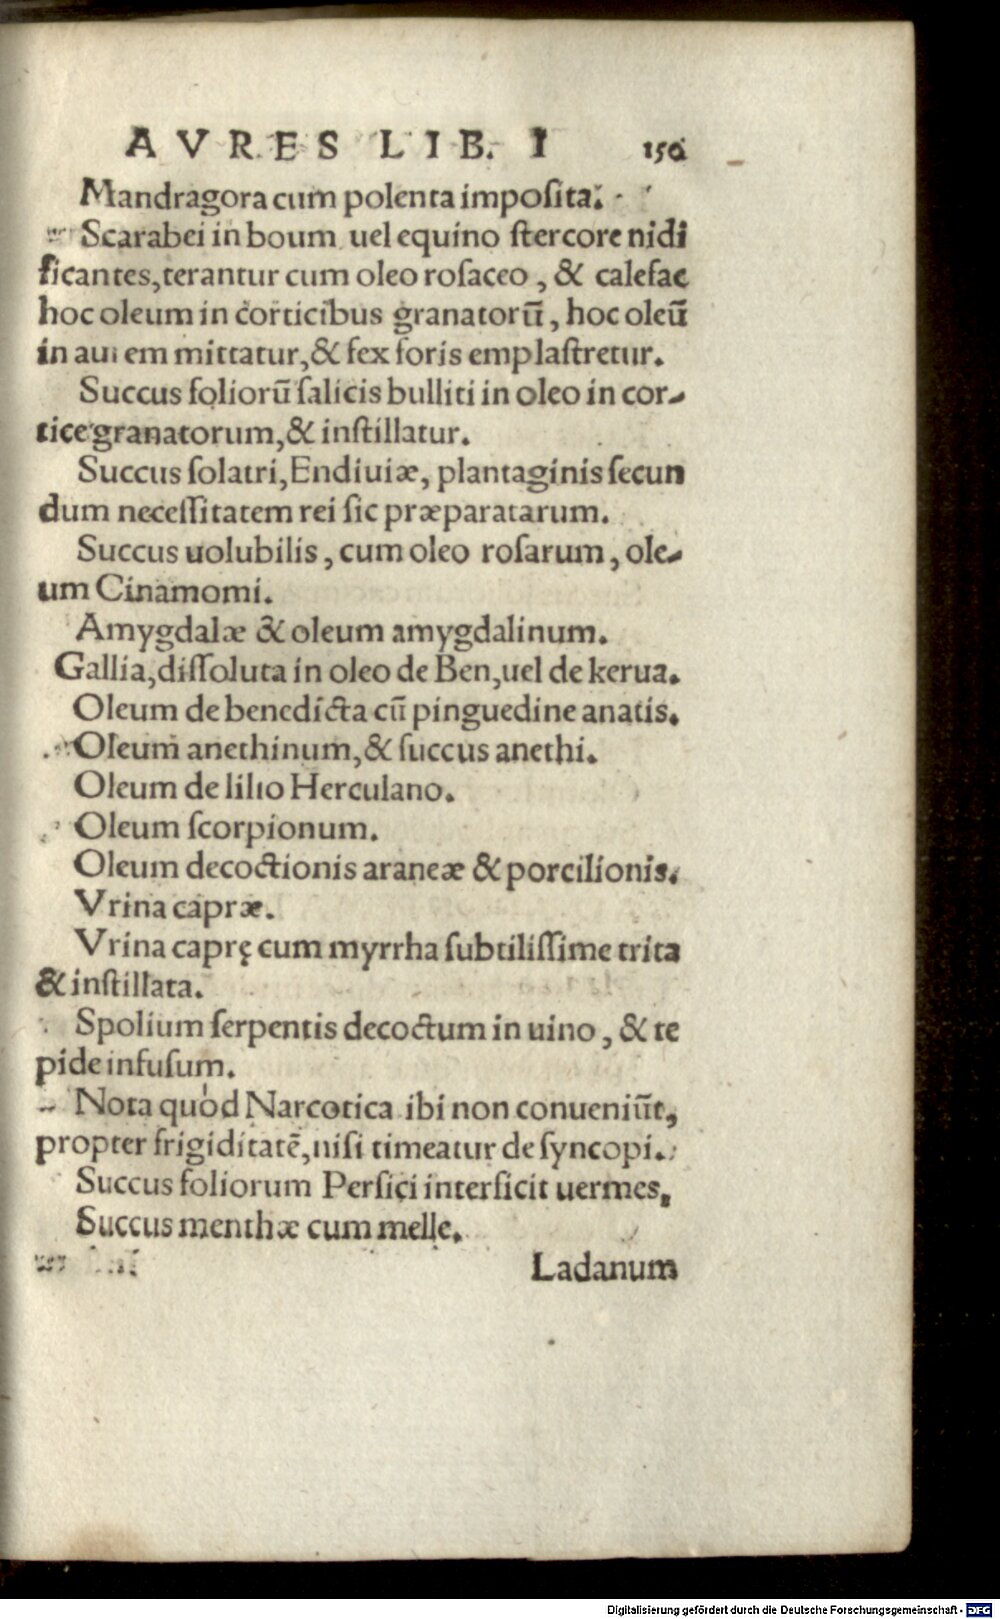 AVRES LIB. I 150
Mandragora cum polenta imposita.
Scarabei in boum uel equino stercore nidi
ficantes, terantur cum oleo rosaceo, & calefac
hoc oleum in corticibus granatorū, hoc oleū
in aurem mittatur, & fex foris emplastretur.
Succus foliorū salicis bulliti in oleo in cor-
tice granatorum, & instillatur.
Succus solatri, Endiuiæ, plantaginis secun
dum necessitatem rei sic præparatarum.
Succus uolubilis, cum oleo rosarum, ole-
um Cinamomi.
Amygdalæ & oleum amygdalinum.
Gallia, dissoluta in oleo de Ben, uel de kerua.
Oleum de benedicta cū pinguedine anatis.
Oleum anethinum, & succus anethi.
Oleum de lilio Herculano.
Oleum scorpionum.
Oleum decoctionis araneæ & porcilionis.
Vrina capræ.
Vrina caprę cum myrrha subtilissime trita
& instillata.
Spolium serpentis decoctum in uino, & te
pide infusum.
Nota quòd Narcotica ibi non conueniūt,
propter frigiditatē, nisi timeatur de syncopi.
Succus foliorum Persici interficit uermes,
Succus menthæ cum melle.
Ladanum
Digitalisierung gefördert durch die Deutsche Forschungsgemeinschaft - DFG